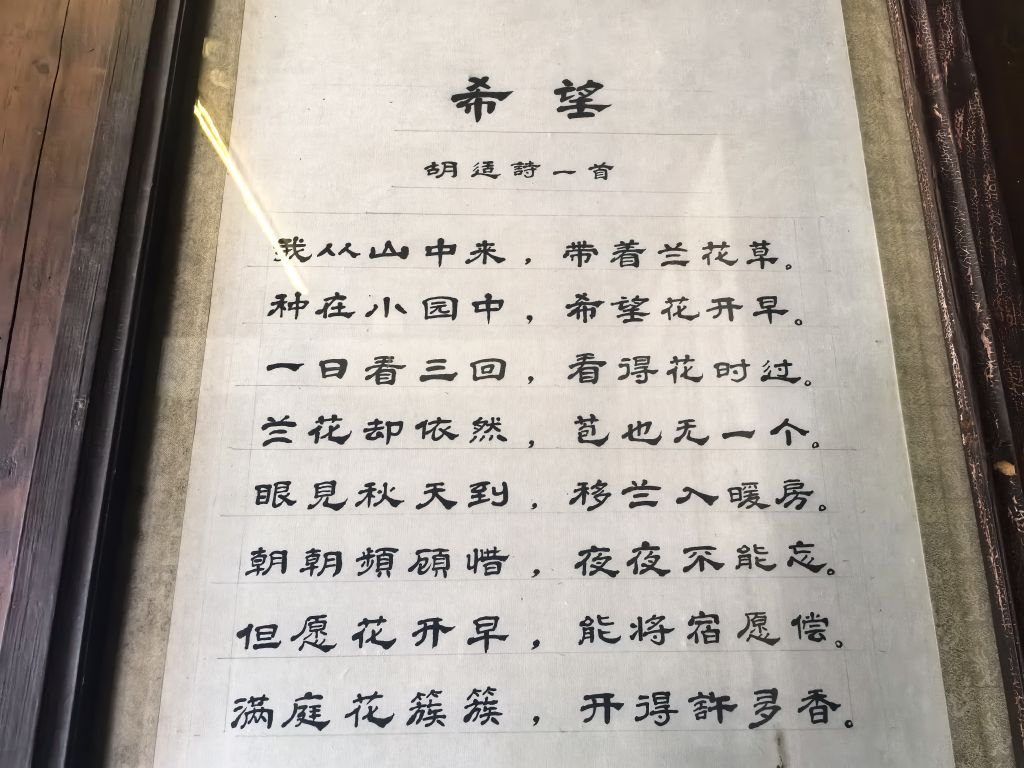 希望
胡适詩一首
我从山中来，带着兰花草。
种在小园中，希望花开早。
一日看三回，看得花时过。
兰花却依然，苞也无一个。
眼見秋天到，移兰入暖房。
朝朝頻顾惜，夜夜不能忘。
但愿花开早，能将宿愿偿。
满庭花簇簇，开得許多香。